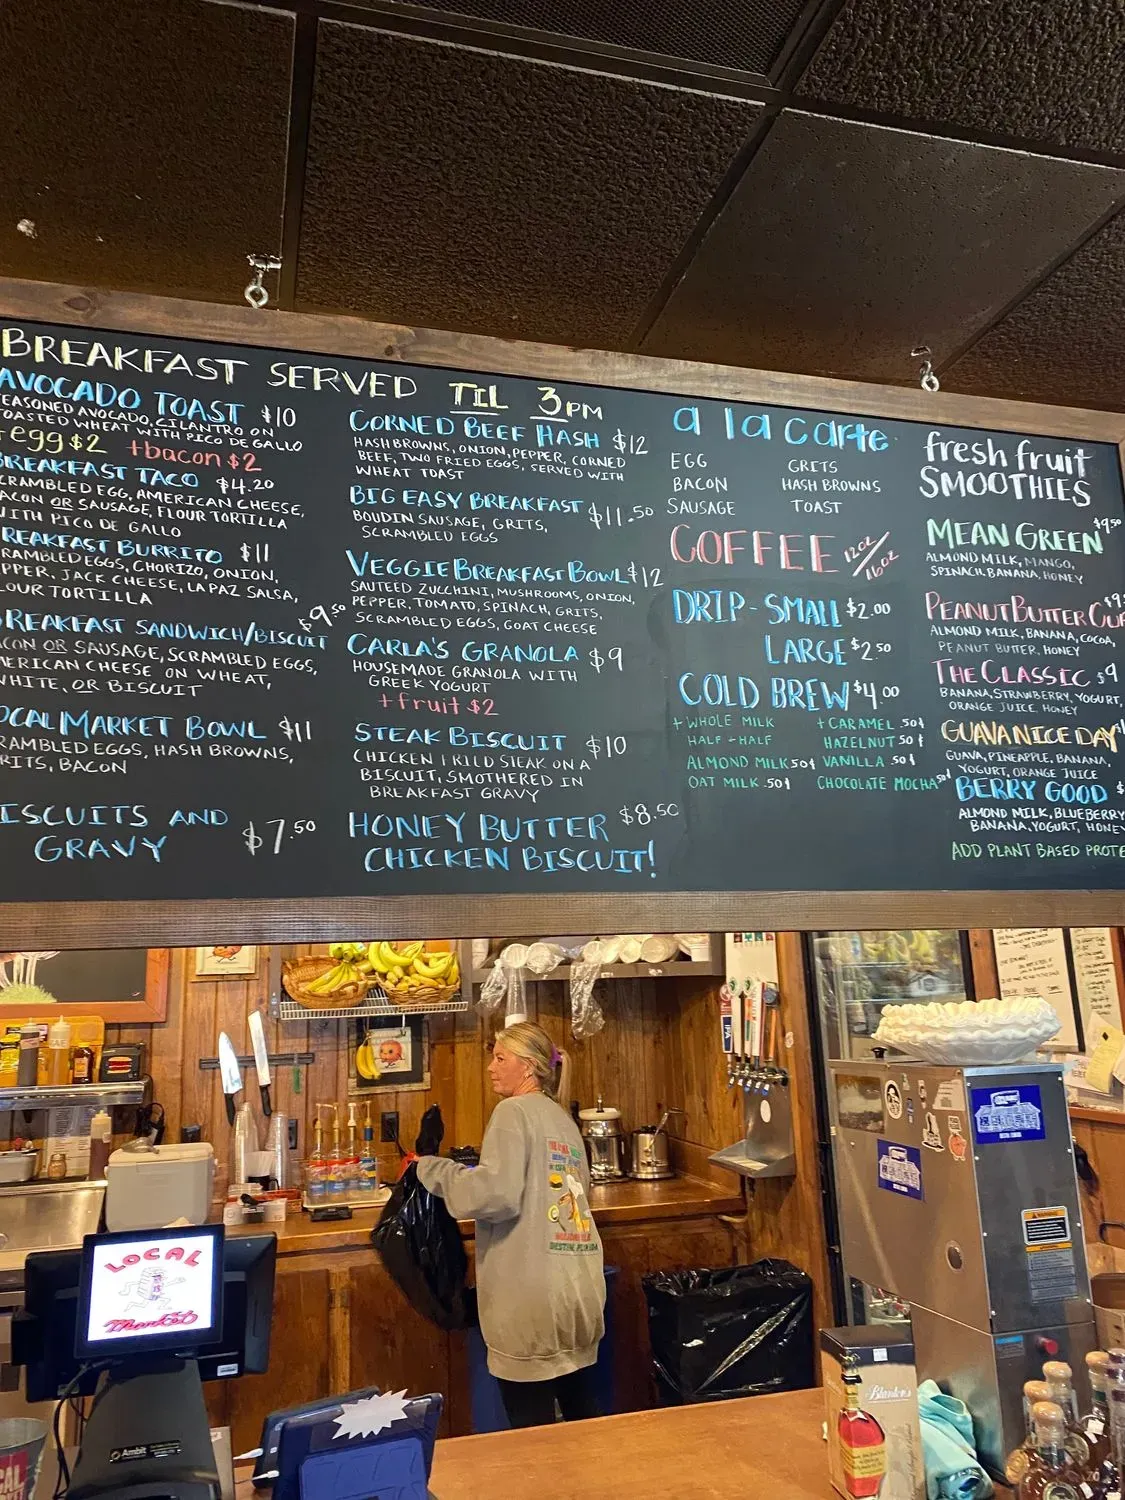 BREAKFAST SERVED TIL 3PM
AVOCADO TOAST $10
SEASONED AVOCADO, CILANTRO ON
TOASTED WHEAT WITH PICO DE GALLO
+egg $2 +bacon $2
BREAKFAST TACO $4.20
SCRAMBLED EGG, AMERICAN CHEESE,
BACON OR SAUSAGE, FLOUR TORTILLA
WITH PICO DE GALLO
BREAKFAST BURRITO $11
RAMBLED EGGS, CHORIZO, ONION,
PPER, JACK CHEESE, LA PAZ SALSA,
LOUR TORTILLA
BREAKFAST SANDWICH/BISCUIT $9.50
CON OR SAUSAGE, SCRAMBLED EGGS,
MERICAN CHEESE ON WHEAT,
WHITE, OR BISCUIT
OCAL MARKET BOWL $11
RAMBLED EGGS, HASH BROWNS,
RITS, BACON
ISCUITS AND
GRAVY $7.50
CORNED BEEF HASH $12
HASH BROWNS, ONION, PEPPER, CORNED
BEEF, TWO FRIED EGGS, SERVED WITH
WHEAT TOAST
BIG EASY BREAKFAST $11.50
BOUDIN SAUSAGE, GRITS,
SCRAMBLED EGGS
VEGGIE BREAKFAST BOWL $12
SAUTEED ZUCCHINI, MUSHROOMS, ONION,
PEPPER, TOMATO, SPINACH, GRITS,
SCRAMBLED EGGS, GOAT CHEESE
CARLA'S GRANOLA $9
HOUSEMADE GRANOLA WITH
GREEK YOGURT
+fruit $2
STEAK BISCUIT $10
CHICKEN FRIED STEAK ON A
BISCUIT, SMOTHERED IN
BREAKFAST GRAVY
HONEY BUTTER $8.50
CHICKEN BISCUIT!
a la carte
EGG
BACON
SAUSAGE
GRITS
HASH BROWNS
TOAST
COFFEE 12oz/16oz
DRIP - SMALL $2.00
LARGE $2.50
COLD BREW $4.00
+ WHOLE MILK
HALF - HALF
ALMOND MILK 50¢
OAT MILK .50¢
+ CARAMEL .50¢
HAZELNUT 50¢
VANILLA 50¢
CHOCOLATE MOCHA 50¢
fresh fruit
SMOOTHIES
MEAN GREEN $9.50
ALMOND MILK, MANGO,
SPINACH, BANANA, HONEY
PEANUT BUTTER CUP $9
ALMOND MILK, BANANA, COCOA,
PEANUT BUTTER, HONEY
THE CLASSIC $9
BANANA, STRAWBERRY, YOGURT,
ORANGE JUICE, HONEY
GUAVA NICE DAY
GUAVA, PINEAPPLE, BANANA,
YOGURT, ORANGE JUICE
BERRY GOOD $
ALMOND MILK, BLUEBERRY
BANANA, YOGURT, HONEY
ADD PLANT BASED PROTE
LOCAL
Market
Ambit
Blanton's
WARNING